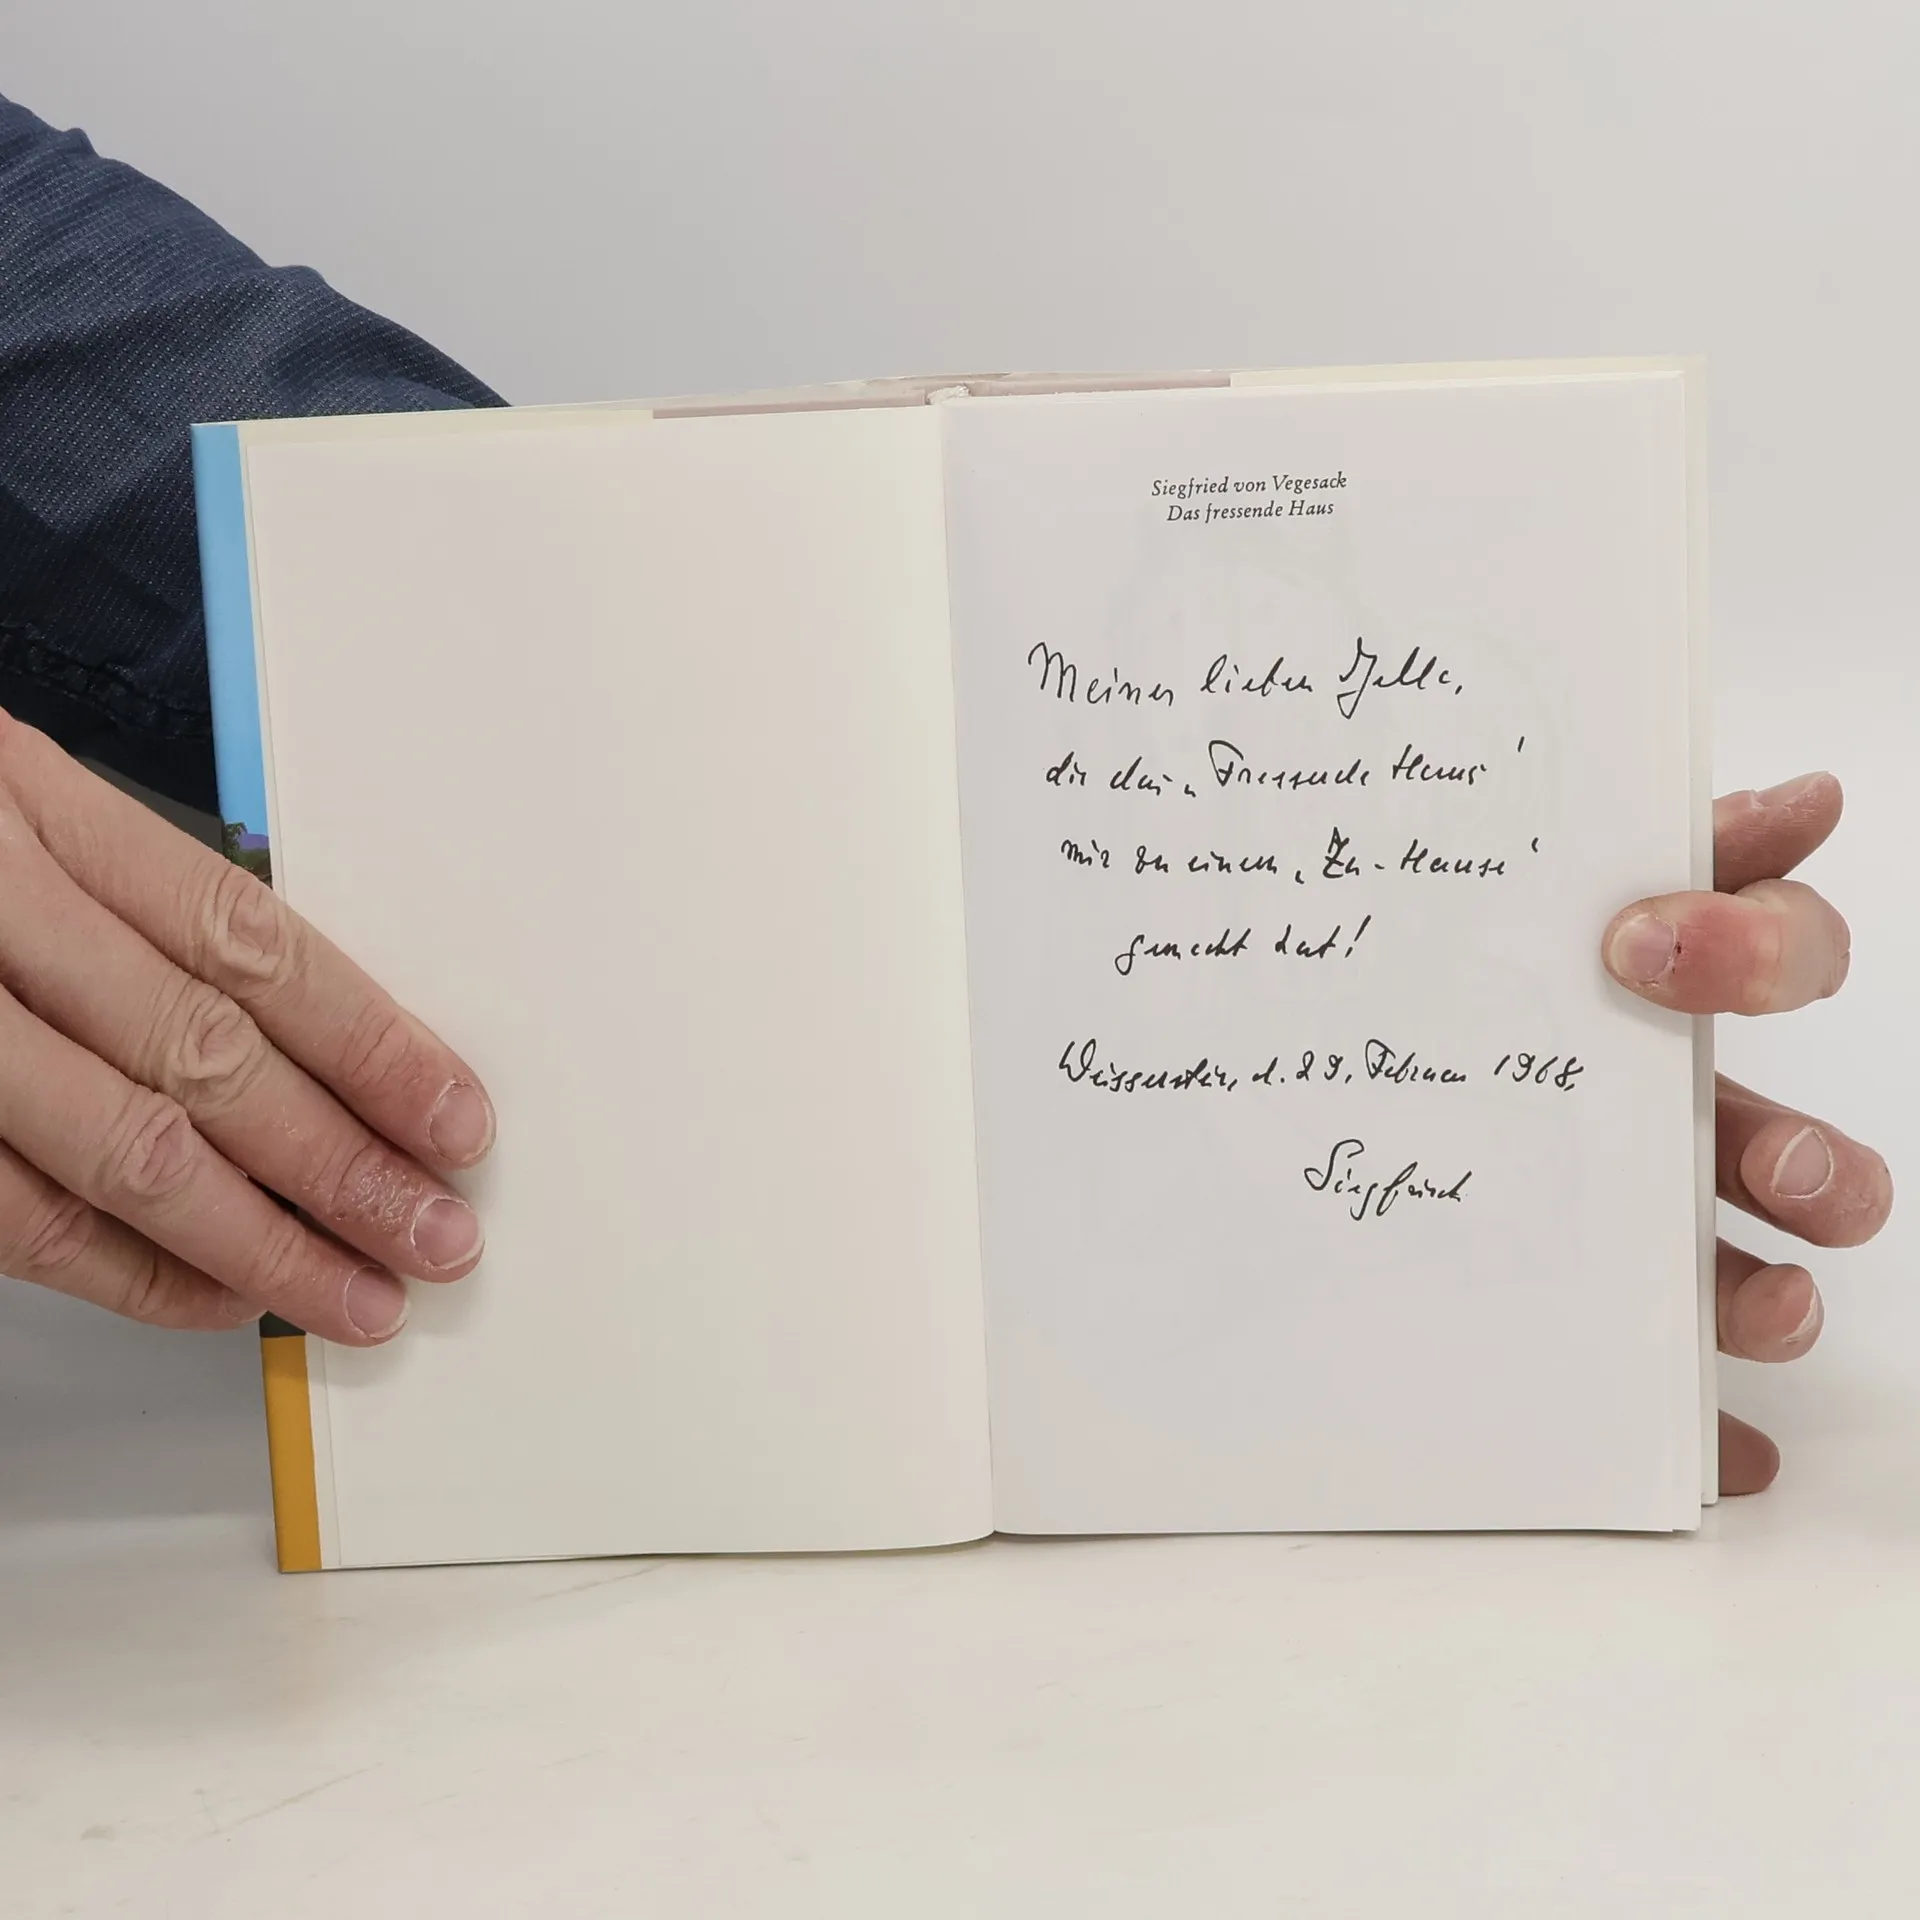 Siegfried von Vegesack
Das fressende Haus
Meiner lieben Jella,
die das „Fressende Haus'
mir zu einem „Zu-Hause‘
gemacht hat!
Weissenstein, d. 29. Februar 1968.
Siegfried